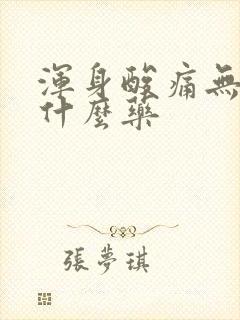 渾身酸痛無
什麼藥
張夢琪